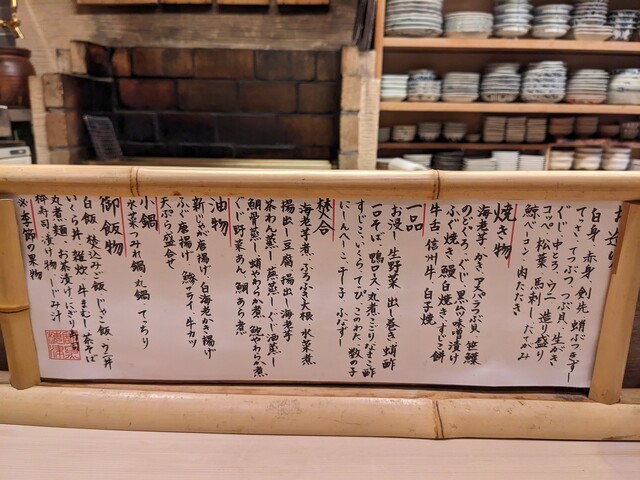 お造り
白身、赤身、剣先、蛸ぶつきずし
てっさ、てつぶつ、つぶ貝、生がき
ぐじ、中とろ、ウニ、造り盛り
コッペ、松葉、馬刺し、だてがみ
鯨ベーコン、肉たたき
焼き物
海老芋、かき、アババつぶ貝、笹鰈
のどぐろ、ぐじ、黒むつ味噌漬け
ふぐ焼き、鰻白焼き、すじこ餅
牛舌、信州牛、白子焼
一品
お浸し、生野菜、出し巻き、蛸酢
一口そば、鴨ロース、丸煮こごり、なまこ酢
すじこ、いくら、てっぴ、このわた、数の子
にしんへしこ、干し子、ふなずし
焚合
海老芋煮、ふろふき大根、水菜煮
揚出し豆腐、揚出し海老芋
茶わん蒸し、蕪蒸し、ぐじ酒蒸し
鯛骨蒸し、蛸やわらか煮、鮑やわらか煮
ぐじ野菜あん、鯛あら煮
油物
新じゃが唐揚げ、白海老かき揚げ
ふぐ唐揚げ、鰺フライ、牛カツ
天ぷら盛合せ
小鍋
水菜つみれ鍋、丸鍋、てっちり
御飯物
白飯、焚込みご飯、じゃこ飯、ウニ丼
いくら丼、雑炊、牛まむし、茶そば
丸煮麺、お茶漬け、にぎり寿司
棒寿司、漬け物、しじみ汁
※季節の果物